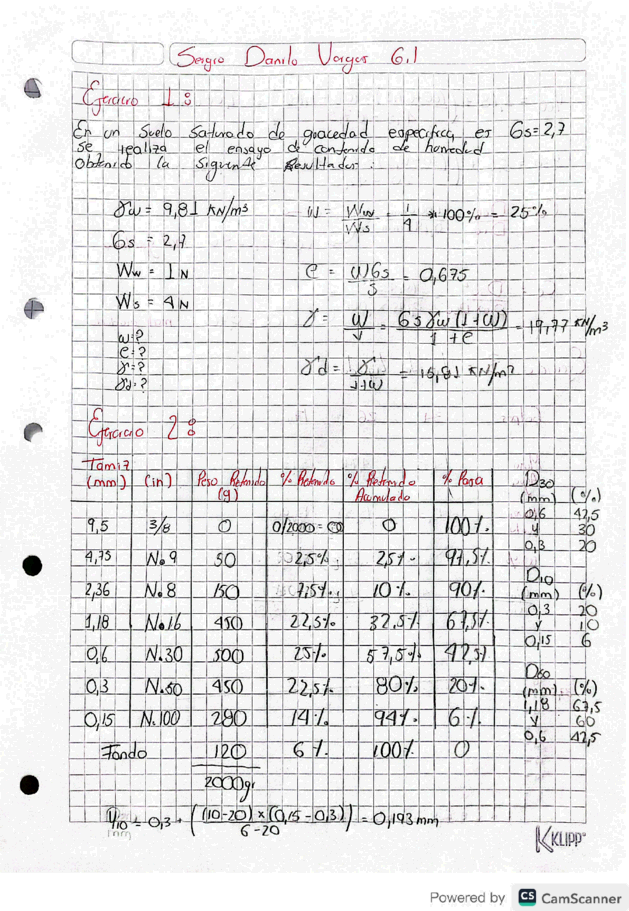 Sergio Danilo Vargas 6.1
Ejercicio 1:
En un Suelo Saturado de gracedad especifica es Gs=2,7
se realiza el ensayo de contenido de humedad
obtenido la Siguiente Resultados:
γw = 9,81 KN/m³
Gs = 2,7
Ww = 1 N
Ws = 4 N
w=?
e=?
γ=?
γd=?
W = Ww/Ws = 1/4 * 100% = 25%
e = WGs/s = 0,675
γ = W/V = Gs γw (1+W)/1+e = 19,77 KN/m³
γd = γ/1+w = 15,81 KN/m³
Ejercicio 2:
Tamiz (mm) (in) Peso Retenido (g) % Retenido % Retenido Acumulado % Pasa
9,5 3/8 0 0/2000 = 0 0 100%
4,75 No 4 50 2,5% 2,5% 97,5%
2,36 No 8 150 7,5% 10% 90%
1,18 No 16 450 22,5% 32,5% 67,5%
0,6 N.30 500 25% 57,5% 42,5%
0,3 N.50 450 22,5% 80% 20%
0,15 N.100 280 14% 94% 6%
Fondo 120 6% 100% 0
2000gr
D30
(mm) (%)
0,6 42,5
y 30
0,3 20
D10
(mm) (%)
0,3 20
y 10
0,15 6
D60
(mm) (%)
1,18 67,5
y 60
0,6 42,5
Y10 = 0,3 + ((10-20) x (0,15 - 0,3)/6-20) = 0,193 mm
KLIPP
Powered by CS CamScanner